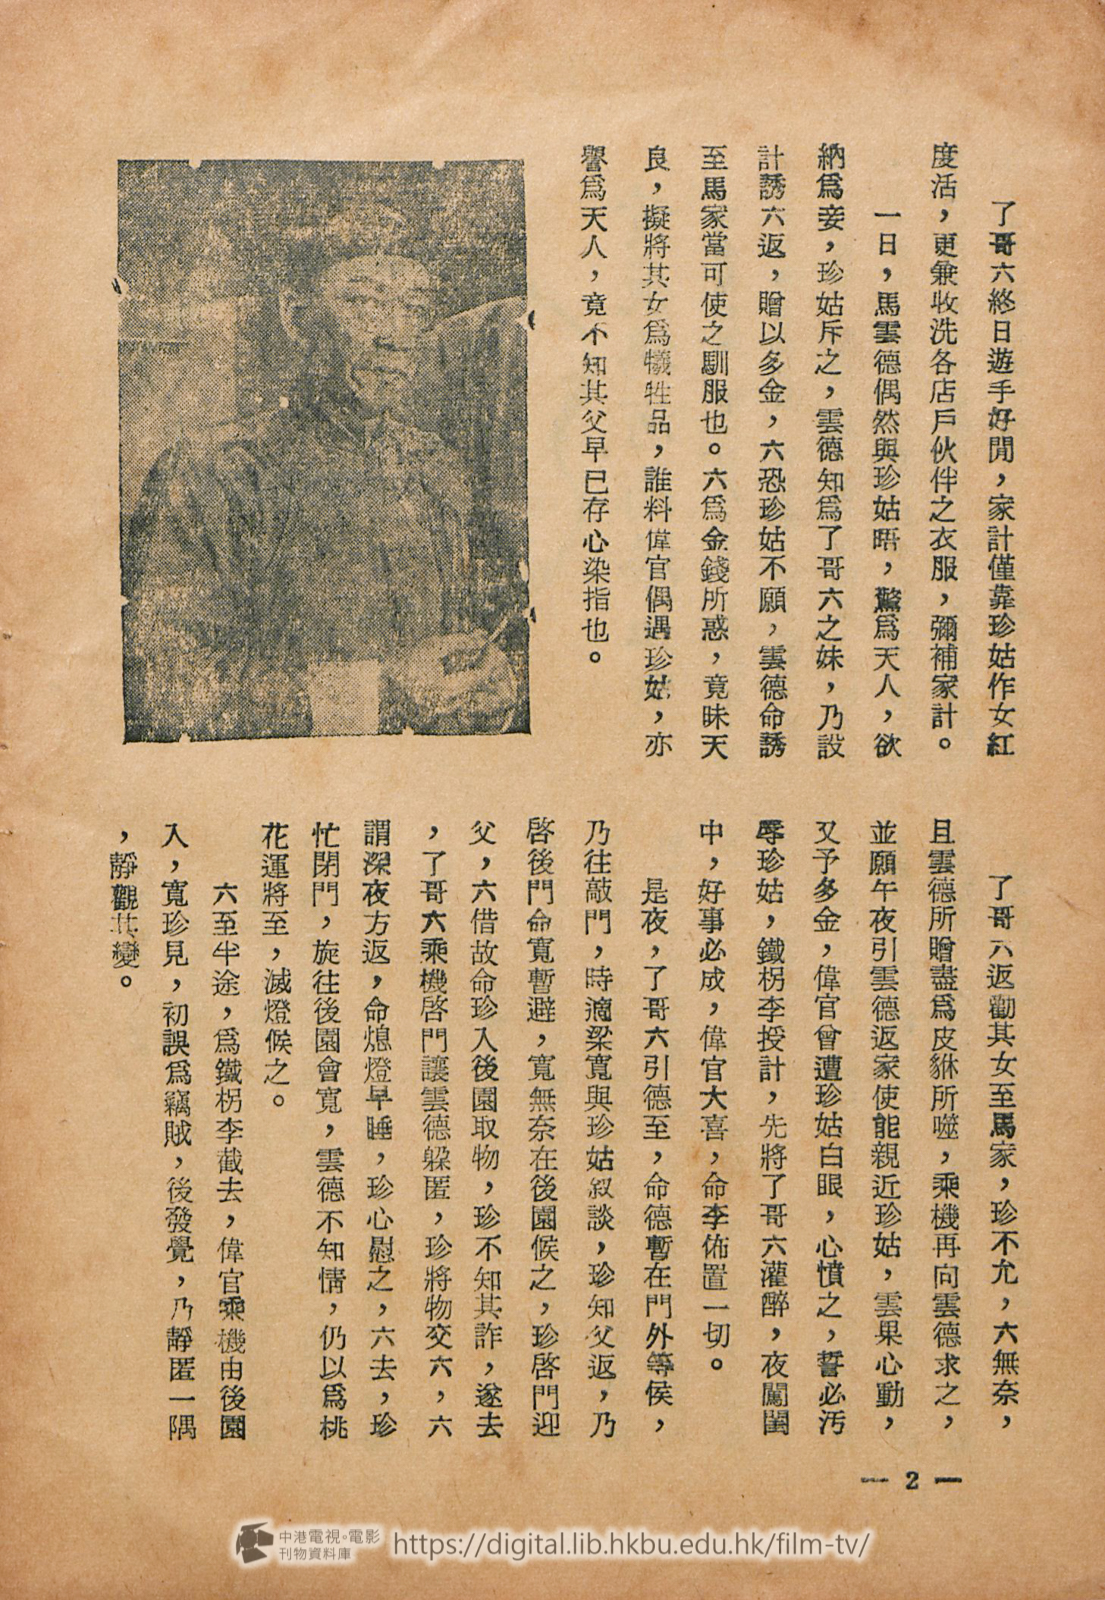 了哥六終日遊手好閒，家計僅靠珍姑作女紅
度活，更兼收洗各店戶伙伴之衣服，彌補家計。
一日，馬雲德偶然與珍姑晤，驚爲天人，欲
納爲妾，珍姑斥之，雲德知爲了哥六之妹，乃設
計誘六返，贈以多金，六恐珍姑不願，雲德命誘
至馬家當可使之馴服也。六爲金錢所惑，竟昧天
良，擬將其女爲犧牲品，誰料偉官偶遇珍姑，亦
譽爲天人，竟不知其父早已存心染指也。
了哥六返勸其女至馬家，珍不允，六無奈，
且雲德所贈盡爲皮貅所噬，乘機再向雲德求之，
並願午夜引雲德返家使能親近珍姑，雲果心動，
又予多金，偉官曾遭珍姑白眼，心憤之，誓必污
辱珍姑，鐵柺李授計，先將了哥六灌醉，夜闖閨
中，好事必成，偉官大喜，命李佈置一切。
是夜，了哥六引德至，命德暫在門外等侯，
乃往敲門，時適梁寬與珍姑叙談，珍知父返，乃
啓後門命寬暫避，寬無奈在後園候之，珍啓門迎
父，六借故命珍入後園取物，珍不知其詐，遂去
，了哥六乘機啓門讓雲德躱匿，珍將物交六，六
謂深夜方返，命熄燈早睡，珍心慰之，六去，珍
忙閉門，旋往後園會寬，雲德不知情，仍以爲桃
花運將至，滅燈候之。
六至半途，爲鐵柺李截去，偉官乘機由後園
入，寬珍見，初誤爲竊賊，後發覺，乃靜匿一隅
，靜觀其變。
— 2 —
中港電視。電影
刊物資料庫
https://digital.lib.hkbu.edu.hk/film-tv/